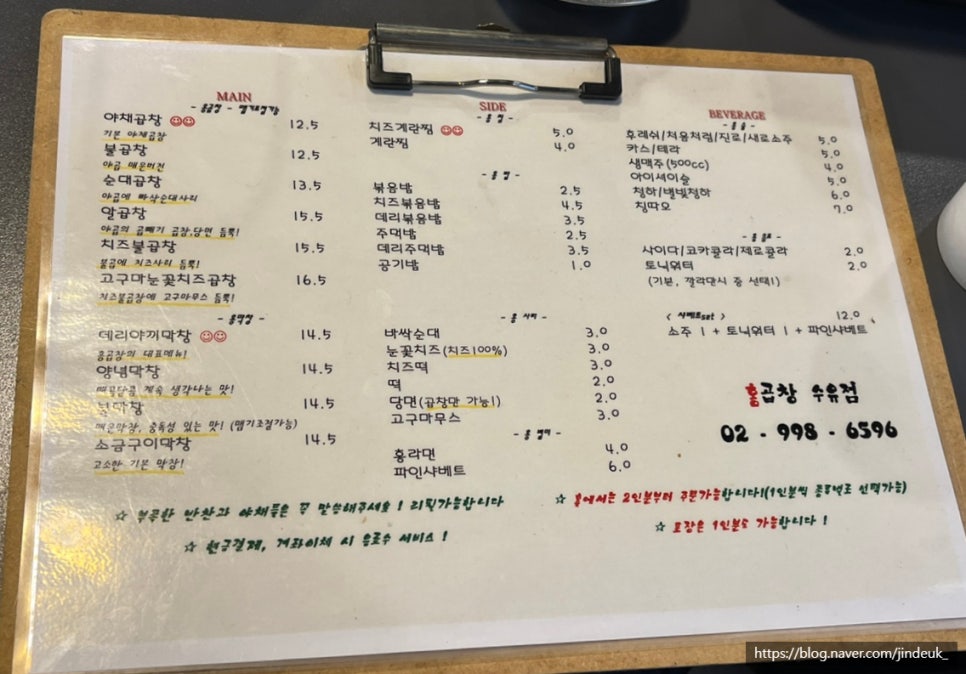 MAIN
- 홍곱창 - 맵기조절가능
야채곱창 12.5
기본 야채곱창
불곱창 12.5
야곱 매운버전
순대곱창 13.5
야곱에 빠삭순대사리
알곱창 15.5
야곱의 곱빼기 곱창,당면 듬뿍!
치즈불곱창 15.5
불곱에 치즈사리 듬뿍!
고구마눈꽃치즈곱창 16.5
치즈불곱창에 고구마무스 듬뿍!
- 홍막창 -
데리야끼막창 14.5
홍곱창의 대표메뉴!
양념막창 14.5
매콤달콤 계속 생각나는 맛!
불막창 14.5
매운막창, 중독성 있는 맛! (맵기조절가능)
소금구이막창 14.5
고소한 기본 막창!
SIDE
- 홍 찜 -
치즈계란찜 5.0
계란찜 4.0
- 홍 밥 -
볶음밥 2.5
치즈볶음밥 4.5
데리볶음밥 3.5
주먹밥 2.5
데리주먹밥 3.5
공기밥 1.0
- 홍 사리 -
바싹순대 3.0
눈꽃치즈 (치즈100%) 3.0
치즈떡 3.0
떡 2.0
당면(곱창만 가능!) 2.0
고구마무스 3.0
- 홍 별미 -
홍라면 4.0
파인샤베트 6.0
BEVERAGE
- 홍 술 -
후레쉬/처음처럼/진로/새로소주 5.0
카스/테라 5.0
생맥주(500cc) 4.0
아이셰이슬 5.0
청하/별빛청하 6.0
칭따오 7.0
- 홍 음료 -
사이다/코카콜라/제로콜라 2.0
토닉워터 2.0
(기본, 깔라만시 중 선택!)
< 샤베트set > 12.0
소주 1 + 토닉워터 1 + 파인샤베트
홍곱창 수유점
02 - 998 - 6596
☆ 부족한 반찬과 야채등은 꼭 말씀해주세요 ! 리필가능합니다
☆ 현금결제, 계좌이체 시 음료수 서비스 !
☆ 홀에서는 2인분부터 주문가능합니다!(1인분씩 종류별로 선택가능)
☆ 포장은 1인분도 가능합니다 !
https://blog.naver.com/jindeuk_